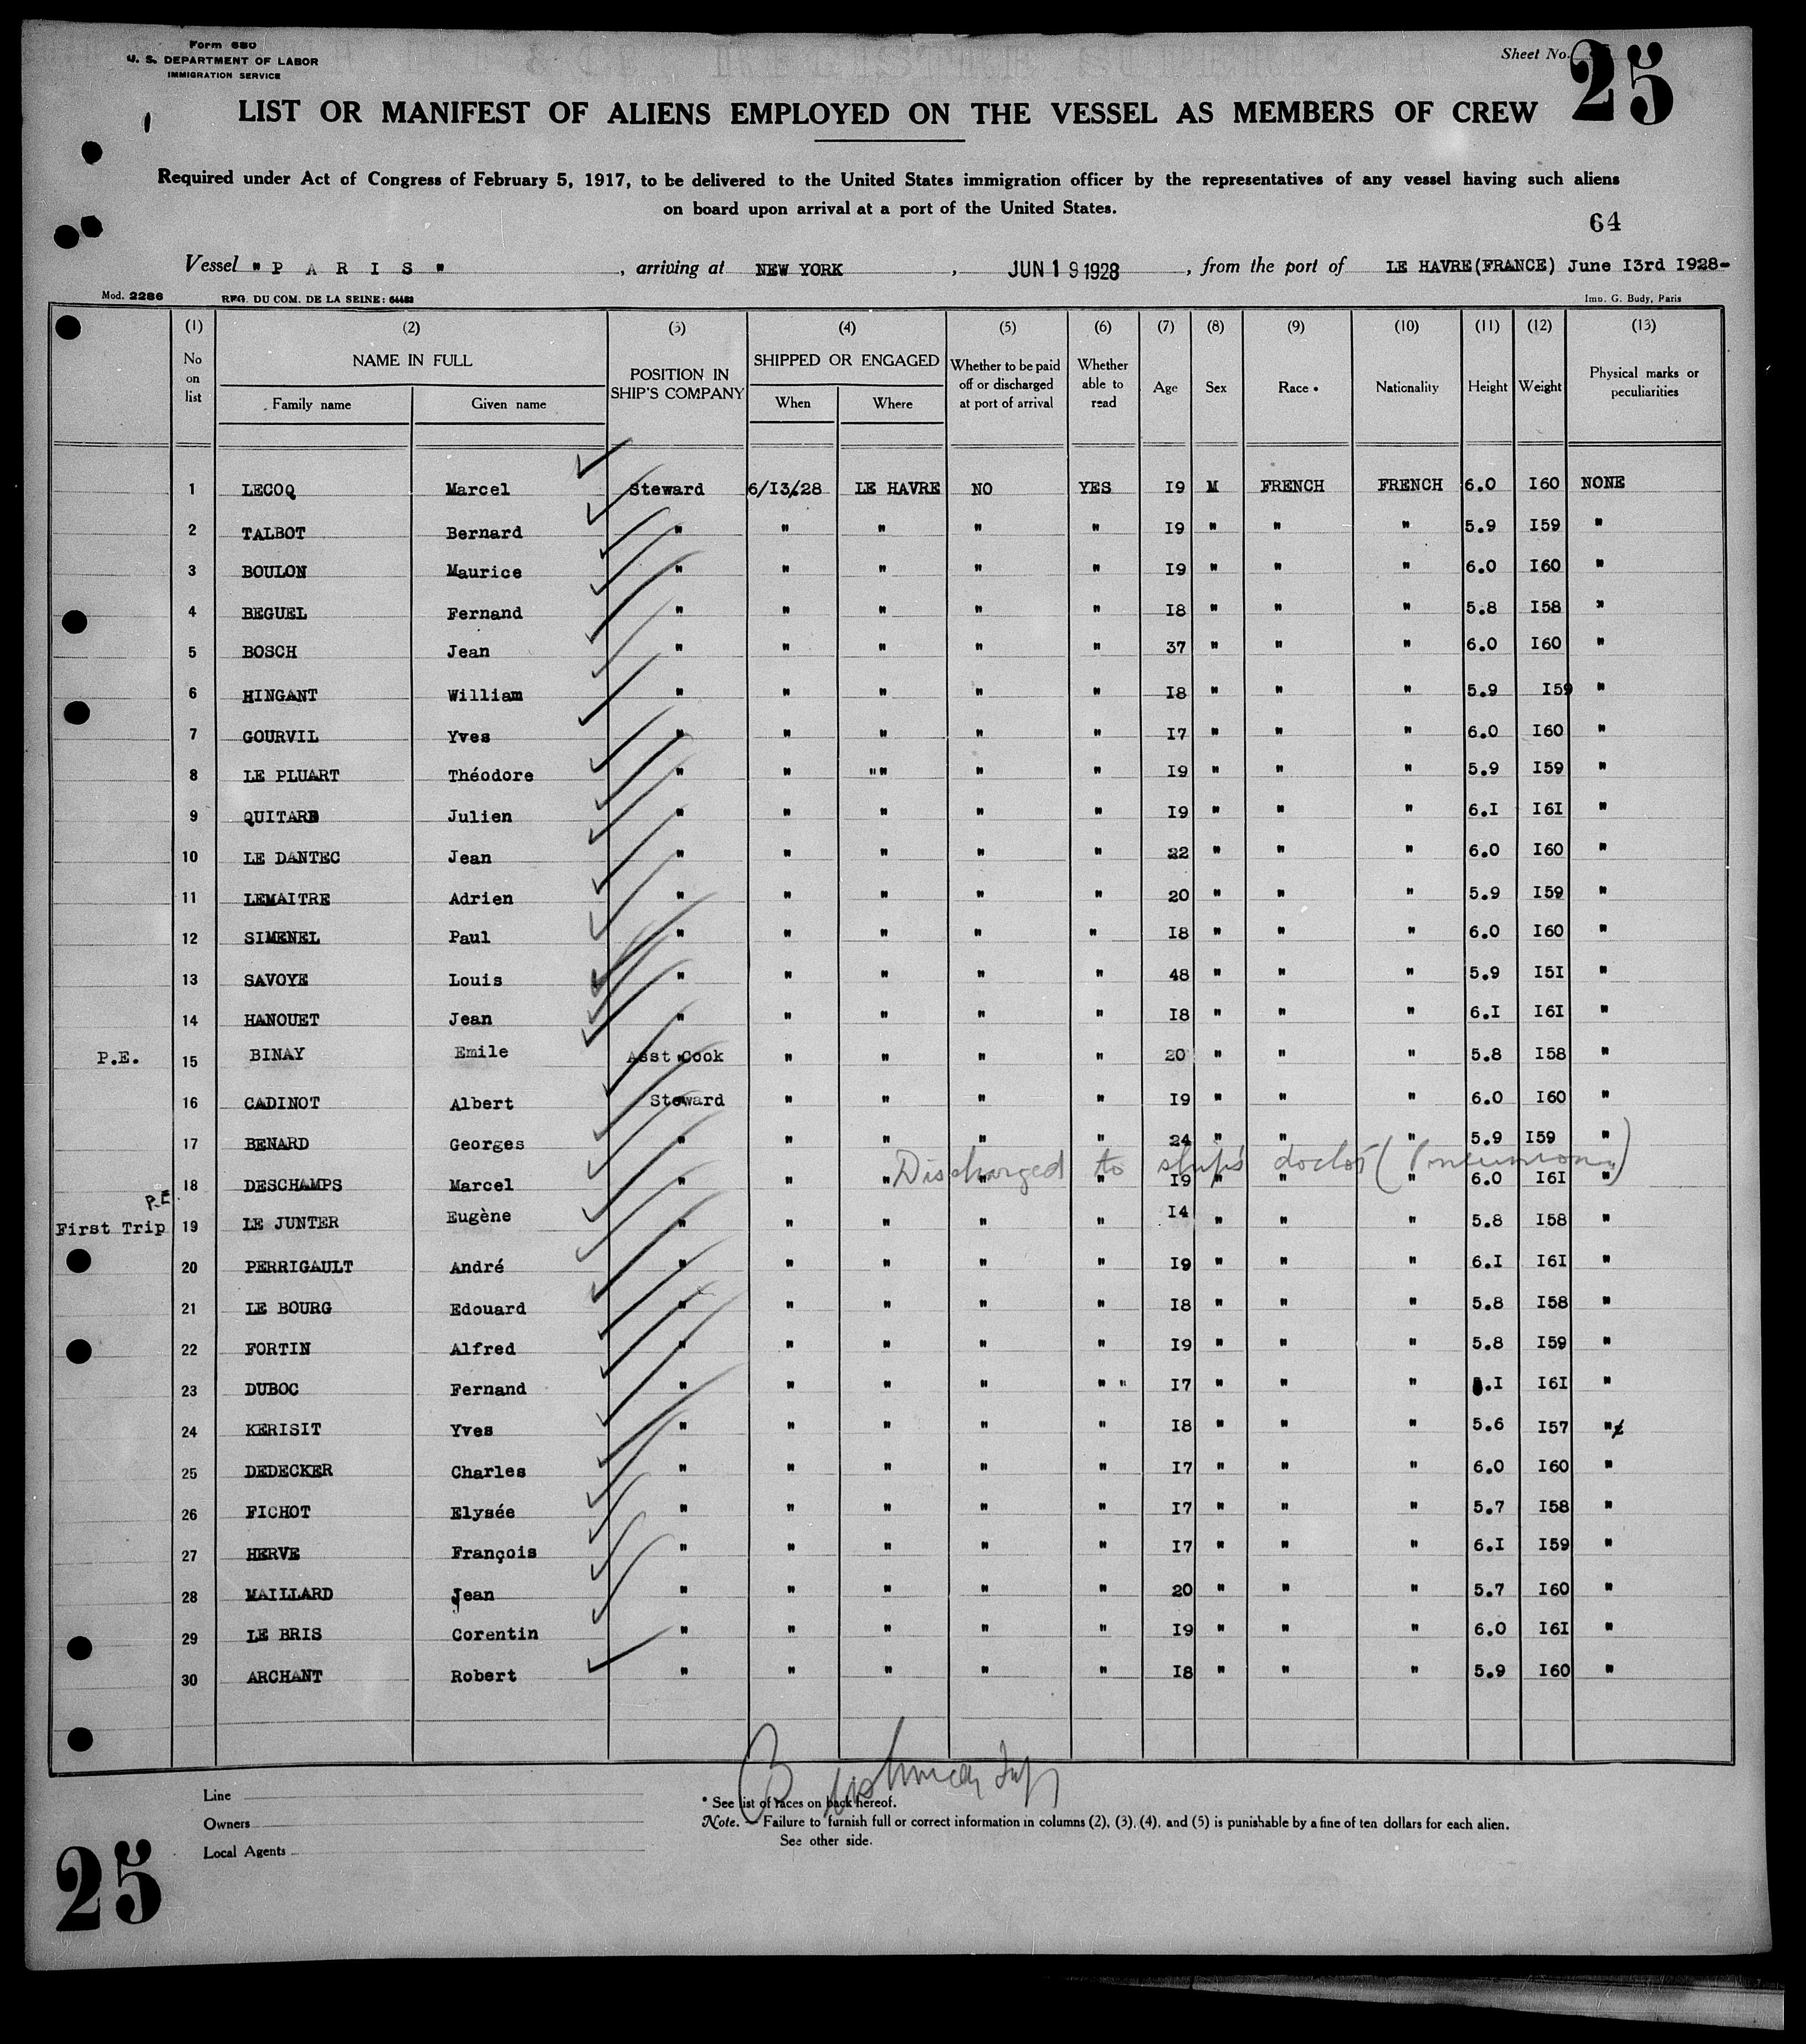 Form 680
U. S. DEPARTMENT OF LABOR
IMMIGRATION SERVICE
Sheet No. 25
LIST OR MANIFEST OF ALIENS EMPLOYED ON THE VESSEL AS MEMBERS OF CREW
Required under Act of Congress of February 5, 1917, to be delivered to the United States immigration officer by the representatives of any vessel having such aliens
on board upon arrival at a port of the United States.
64
Vessel "PARIS", arriving at NEW YORK, JUN 19 1928, from the port of LE HAVRE(FRANCE) June I3rd I928-
Mod. 2286 REG. DU COM. DE LA SEINE: 64483 Imp. G. Budy, Paris
(1) (2) (3) (4) (5) (6) (7) (8) (9) (10) (11) (12) (13)
No on list NAME IN FULL POSITION IN SHIP'S COMPANY SHIPPED OR ENGAGED Whether to be paid off or discharged at port of arrival Whether able to read Age Sex Race • Nationality Height Weight Physical marks or peculiarities
Family name Given name When Where
1 LECOQ Marcel Steward 6/I3/28 LE HAVRE NO YES I9 M FRENCH FRENCH 6.0 I60 NONE
2 TALBOT Bernard " " " " " I9 " " " 5.9 I59 "
3 BOULON Maurice " " " " " I9 " " " 6.0 I60 "
4 BEGUEL Fernand " " " " " I8 " " " 5.8 I58 "
5 BOSCH Jean " " " " " 37 " " " 6.0 I60 "
6 HINGANT William " " " " " I8 " " " 5.9 I59 "
7 GOURVIL Yves " " " " " I7 " " " 6.0 I60 "
8 LE PLUART Théodore " " "" " " I9 " " " 5.9 I59 "
9 QUITARD Julien " " " " " I9 " " " 6.I I6I "
10 LE DANTEC Jean " " " " " 22 " " " 6.0 I60 "
11 LEMAITRE Adrien " " " " " 20 " " " 5.9 I59 "
12 SIMENEL Paul " " " " " I8 " " " 6.0 I60 "
13 SAVOYE Louis " " " " " 48 " " " 5.9 I5I "
14 HANOUET Jean " " " " " I8 " " " 6.I I6I "
P.E. 15 BINAY Emile Asst Cook " " " " 20 " " " 5.8 I58 "
16 CADINOT Albert Steward " " " " I9 " " " 6.0 I60 "
17 BENARD Georges " " " " " 24 " " " 5.9 I59 "
Discharged to ship's doctor (Pneumonia)
18 DESCHAMPS Marcel " " " " I9 " " " 6.0 I6I "
P.E
First Trip 19 LE JUNTER Eugène " " " " " I4 " " " 5.8 I58 "
20 PERRIGAULT André " " " " I9 " " " 6.I I6I "
21 LE BOURG Edouard " " " " " I8 " " " 5.8 I58 "
22 FORTIN Alfred " " " " " I9 " " " 5.8 I59 "
23 DUBOC Fernand " " " " " " I7 " " " .I I6I "
24 KERISIT Yves " " " " " I8 " " " 5.6 I57 "
25 DEDECKER Charles " " " " " I7 " " " 6.0 I60 "
26 FICHOT Elysée " " " " " I7 " " " 5.7 I58 "
27 HERVE François " " " " " I7 " " " 6.I I59 "
28 MAILLARD Jean " " " " " 20 " " " 5.7 I60 "
29 LE BRIS Corentin " " " " " I9 " " " 6.0 I6I "
30 ARCHANT Robert " " " " " I8 " " " 5.9 I60 "
Line
Owners
Local Agents
* See list of races on back hereof.
Note. — Failure to furnish full or correct information in columns (2), (3), (4), and (5) is punishable by a fine of ten dollars for each alien.
See other side.
25